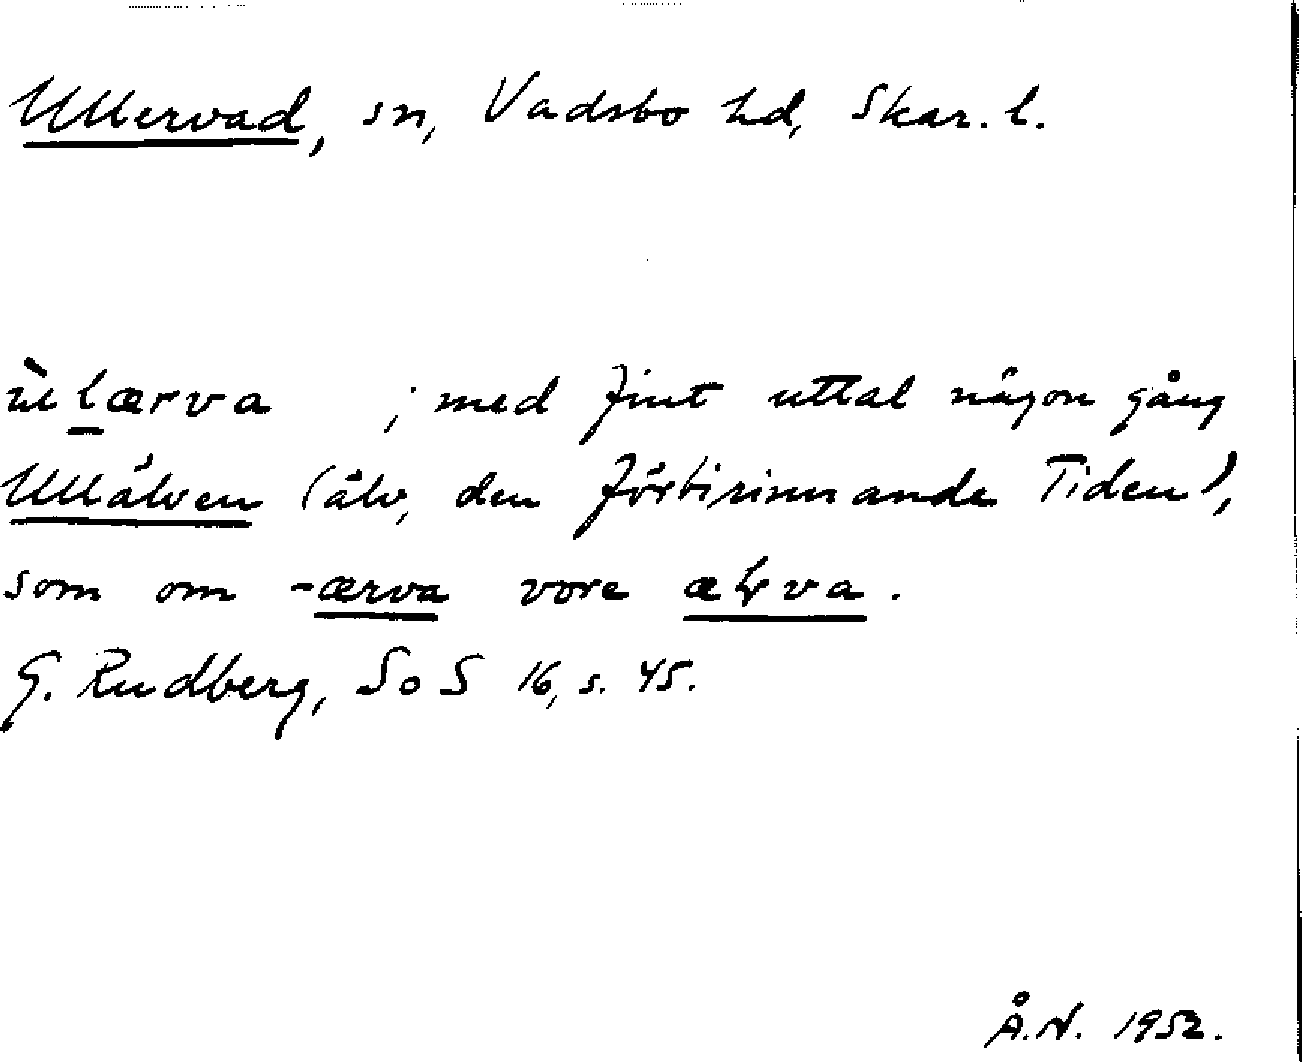 Ullervad, sn, Vadsbo hd, Skar. l.
ùlærva ; med fint uttal någon gång
Ullälven (älv, den förbirinnande Tidan),
som om -ærva vore æɫva.
G. Rudberg, SoS 16, s. 45.
Å.N. 1952.